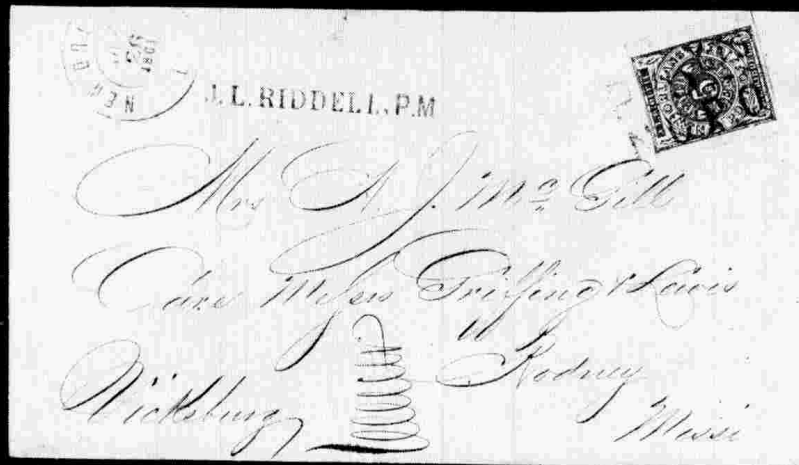 NEW
1861
J. L. RIDDELL, P.M
5
Mrs A. J. Mc Gill
Care Messrs Griffing & Lewis
Rodney
Vicksburg Missi